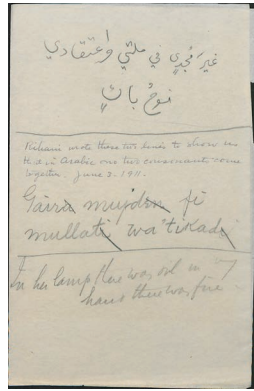 غيرَ مُجدٍي في ملتي واعتقادي
نوحُ باكٍ
Rihani wrote these two lines to show us
in Arabic one two consonants come
together. June 2-1911.
Gairu mujdin fi
mullati wa'tikadi
In her lamp there was oil in my
hand there was fire